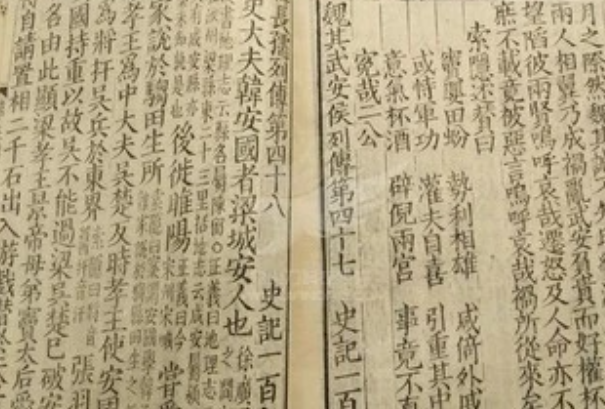 月之際然魏其誠不知
兩人相翼乃成禍亂武安負貴而好權杯
望陷彼兩賢嗚呼哀哉遷怒及人命亦不
不載竟被惡言嗚呼哀哉禍所從來矣
索隱述贊曰
竇嬰田蚡 勢利相雄 咸倚外戚
或恃軍功 灌夫自喜 引重其中
意氣杯酒 辟倪兩宮 事竟不直
冤哉二公
魏其武安侯列傳第四十七 史記一百
長孺列傳第四十八 史記一百
史大夫韓安國者梁城安人也 徐廣
書地理志云縣名屬陳留○正義曰地理志
汝州梁縣東二十三里括地志云成安縣
後徙睢陽 正義曰今宋州宋城 嘗受
家說於騶田生所
孝王為中大夫吳楚反時孝王使安國
為將扞吳兵於東界 張羽
國持重以故吳不能過梁吳楚已破安
名由此顯梁孝王景帝母弟竇太后愛
自請置相二千石出入游戲